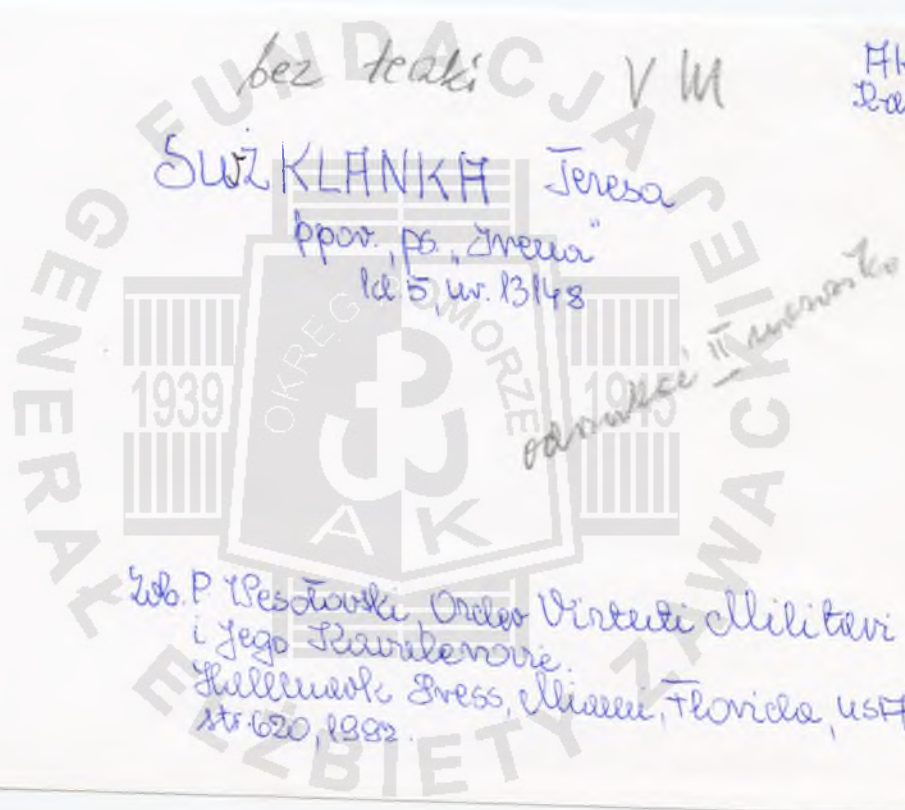 bez teczki VM
AK
SUŻKLANKA Teresa
ppor., ps. „Irena"
kl. 5, nr. 13148
odszukać II nazwisko
Zob. P. Wesołowski, Order Virtuti Militari
i Jego Kawalerowie.
Hallmark Press, Miami, Florida, USA
str. 620, 1992.
FUNDACJA GENERAŁ ELŻBIETY ZAWACKIEJ
OKRĘG POMORZE
1939 1945
AK